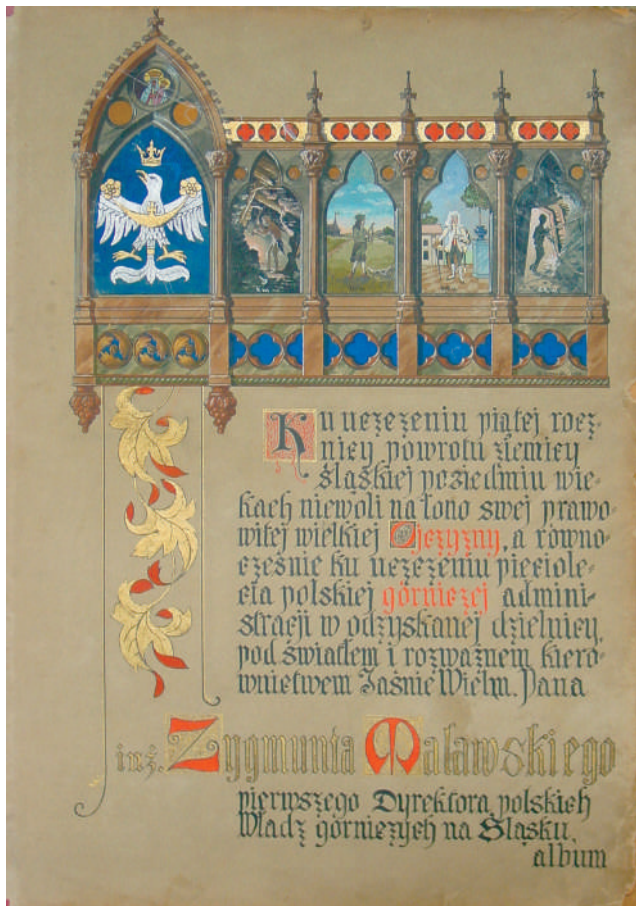 Ku uczczeniu piątej rocz-
nicy powrotu ziemicy
śląskiej po siedmiu wie-
kach niewoli na łono swej prawo-
witej wielkiej Ojczyzny, a równo-
cześnie ku uczczeniu pięciole-
cia polskiej górniczej admini-
stracji w odzyskanej dzielnicy,
pod światłem i rozważnem kiero-
wnictwem Jaśnie Wielm. Pana
inż. Zygmunta Malawskiego
pierwszego Dyrektora polskich
Władz górniczych na Śląsku,
album